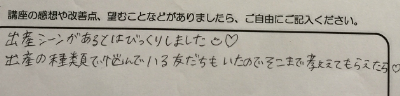 講座の感想や改善点、望むことなどがありましたら、ご自由にご記入ください。
出産シーンがあるとはびっくりしました☺♡
出産の種類で悩んでいる友だちもいたのでそこまで教えてもらえたら♡